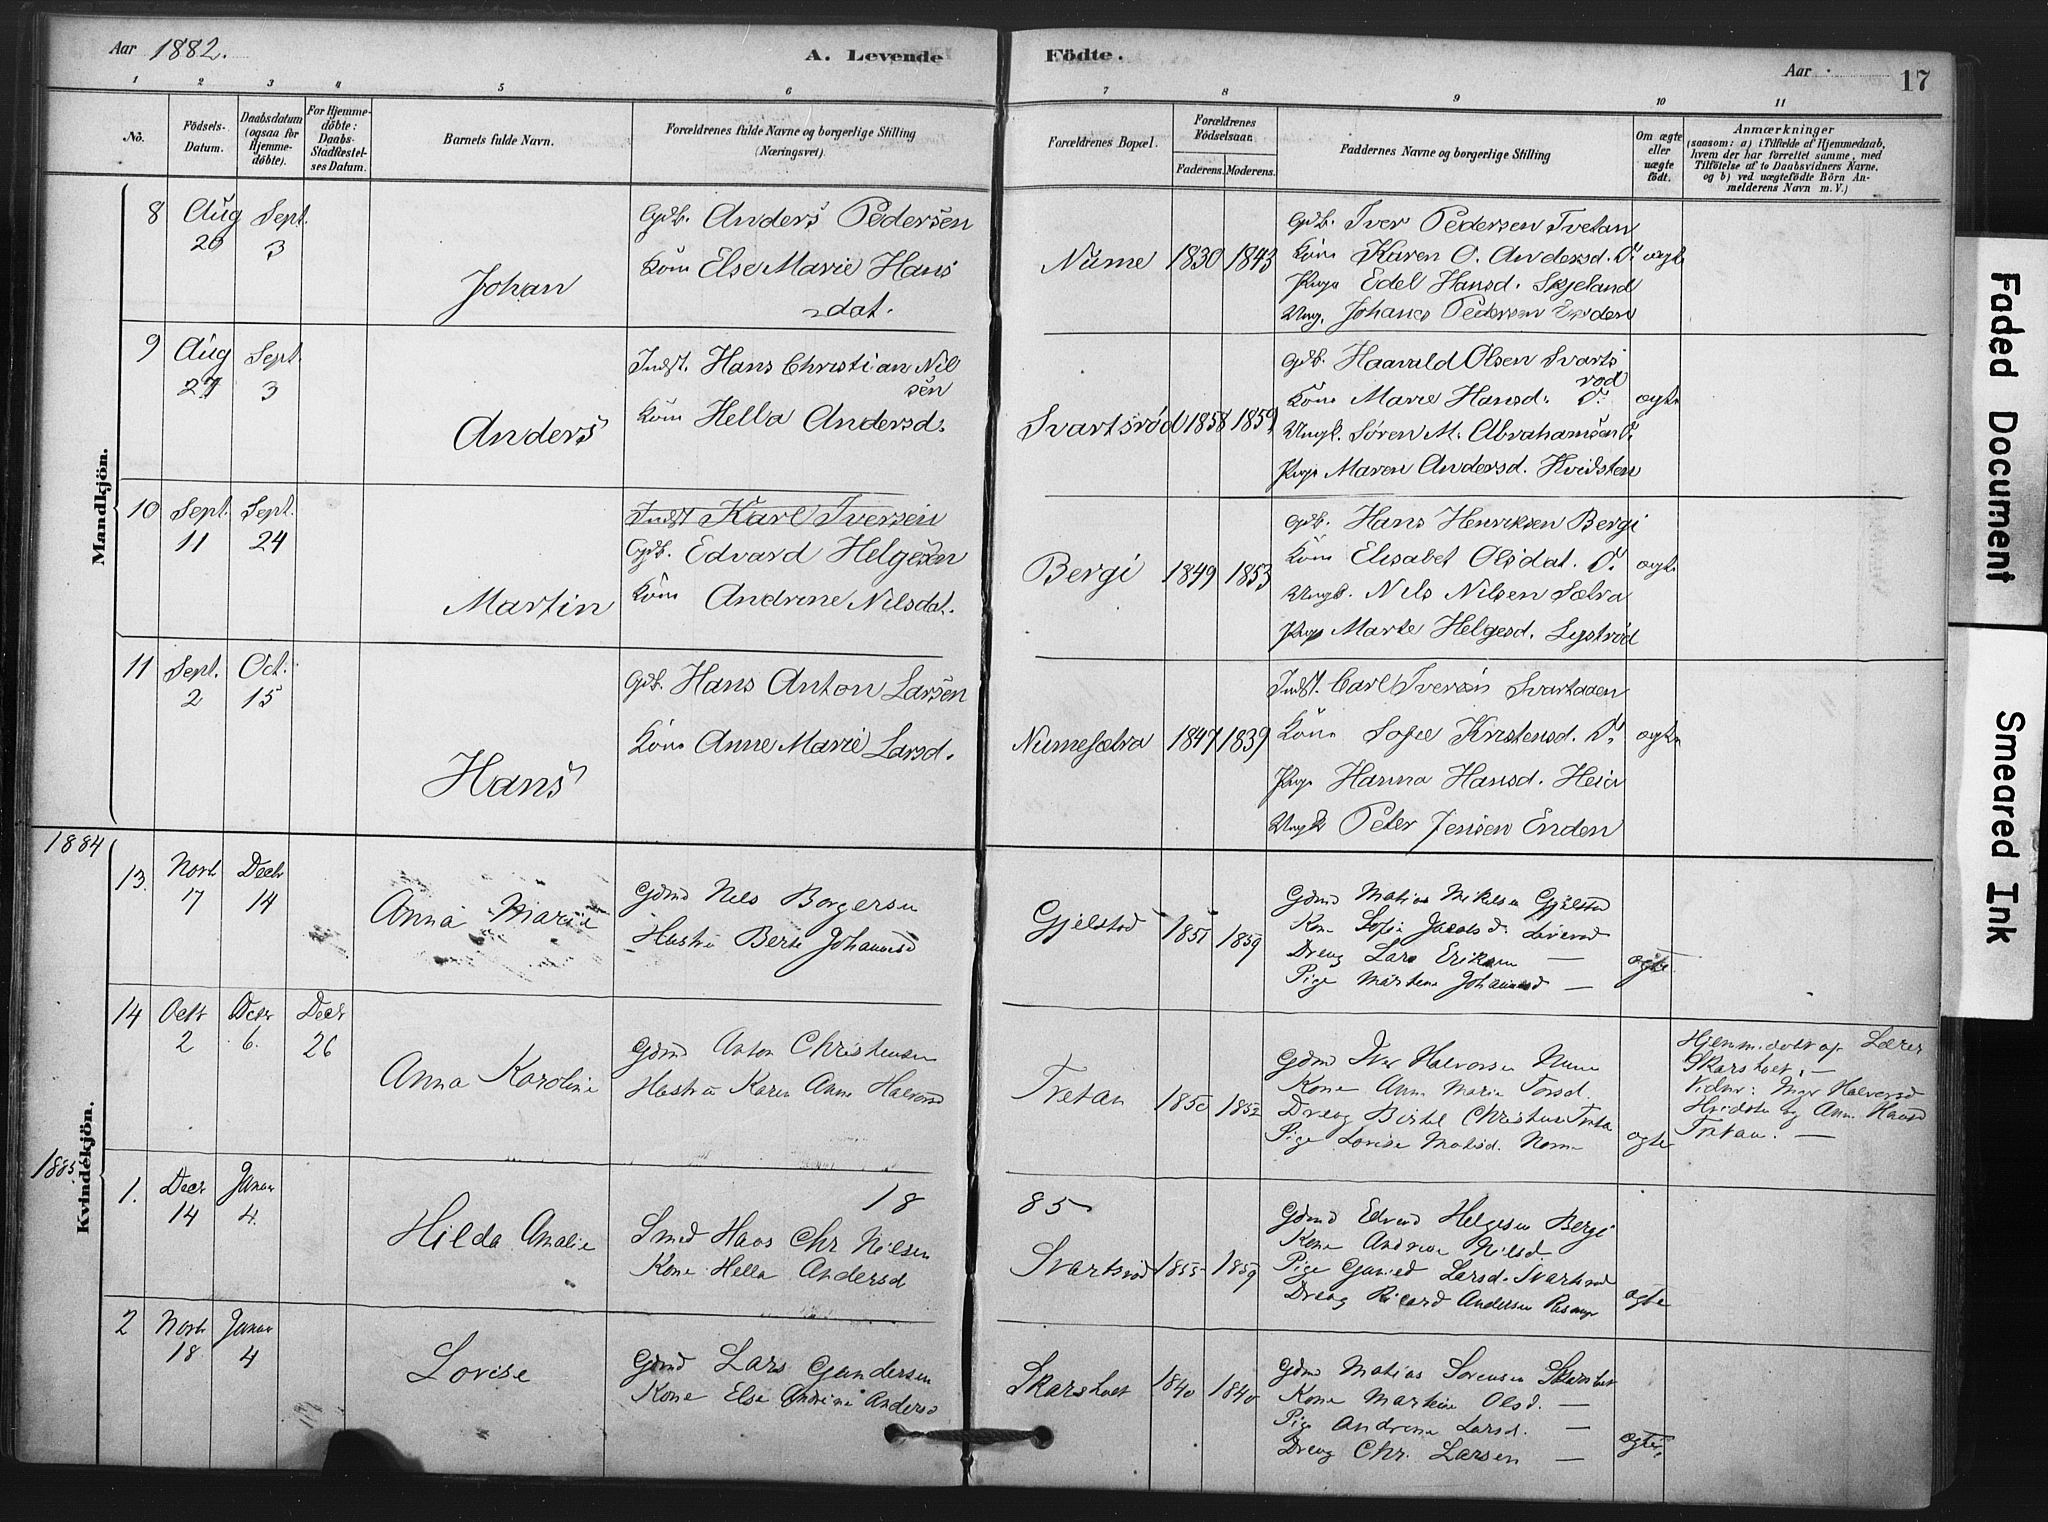 Aar 1882.
A. Levende Födte.
Aar
17
1 2 3 4 5 6 7 8 9 10 11
No.
Födsels-Datum.
Daabsdatum (ogsaa for Hjemme-döbte).
For Hjemme-döbte: Daabs-Stadfæstel-ses Datum.
Barnets fulde Navn.
Forældrenes fulde Navne og borgerlige Stilling (Næringsvei).
Forældrenes Bopæl.
Forældrenes Födselsaar.
Faderens. Moderens.
Faddernes Navne og borgerlige Stilling
Om ægte eller uægte födt.
Anmærkninger
(saasom: a) i Tilfælde af Hjemmedaab, hvem der har forrettet samme, med Tilföielse af to Daabsvidners Navne. og b) ved uægtefödte Börn An-melderens Navn m. V.)
Mandkjön.
8 Aug 20 Sept. 3
Johan
Gdb. Anders Pedersen
Kone Else Marie Hans
dat.
Nume 1830 1843
Gdb. Iver Pedersen Tvetan
Kone Karen O. Andersd. Do
Pige Edel Hansd. Skjeland
Ung. Johanes Pedersen Enden
ægte
9 Aug 27 Sept. 3
Anders
Indst. Hans Christian Nil
sen
Kone Hella Andersd.
Svartsrød 1858 1859
Gdb. Haavald Olsen Svarts
rød
Kone Marie Hansd. Do
Ungk. Søren M. Abrahamsen Do
Pige Maren Andersd. Hvidsten
ægte
10 Sept. 11 Sept. 24
Martin
Indst Karl Iversen
Gdb. Edvard Helgesen
Kone Andrine Nilsdat.
Bergi 1849 1853
Gdb. Hans Henriksen Bergi
Kone Elisabet Olsdat. Do
Ungk. Nils Nilsen Sætra
Pige Marte Helgesd. Lystrød
ægte
11 Sept. 2 Oct. 15
Hans
Gdb. Hans Anton Larsen
Kone Anne Marie Larsd.
Numesætra 1847 1839
Indst. Carl Iversen Svartaaen
Kone Sofie Kirstensd. Do
Pige Hanna Hansd. Heia
Ungk Peter Jensen Enden
ægte
1884
Kvindekjön.
13. Novb 17 Decbr 14
Anna Marie
Gdmd Nels Borgersen
Hustru Berte Johannesd
Gjelstad 1851 1859
Gdmd Matias Mikelsen Gjelstad
Kone Sofie Jacobsd.
Dreng Lars Eriksen —
Pige Martine Johannesd —
ægte
14 Octb 2 Octbr 6. Decbr 26
Anna Karoline
Gdmd Anton Christensen
Hustru Karen Anne Halvorsd
Tvetan 1850 1852
Gdmd Iver Halvorsen Nume
Kone Anne Marie Torsd.
Dreng Bertel Christensen Tvetan
Pige Lovise Matsd. Nome
ægte
Hjemmedøbt af Lærer
Skarsholt. —
Vidner: Halvorsd
Hvidsten og Anne Hansd
Tvetan. —
1885.
1. Decbr 14 Januar 4.
18 85
Hilda Amalie
Smed Hans Chr Nilsen
Kone Hella Andersd
Svartsrød 1855 1859
Gdmd Edvard Helgesen Bergi
Kone Andrine Nilsd
Pige Gunild Larsd. Svartsrød
Dreng Ricard Andersen
ægte
2 Novb 18 Januar 4
Lovise
Gdmd Lars Gundersen
Kone Else Andrine Andersd
Skarsholt 1840 1840
Gdmd Matias Sorensen Skarsholt
Kone Martine Olsd. —
Pige Andrine Larsd. —
Dreng Chr. Larsen —
ægte.
Faded Document
Smeared Ink